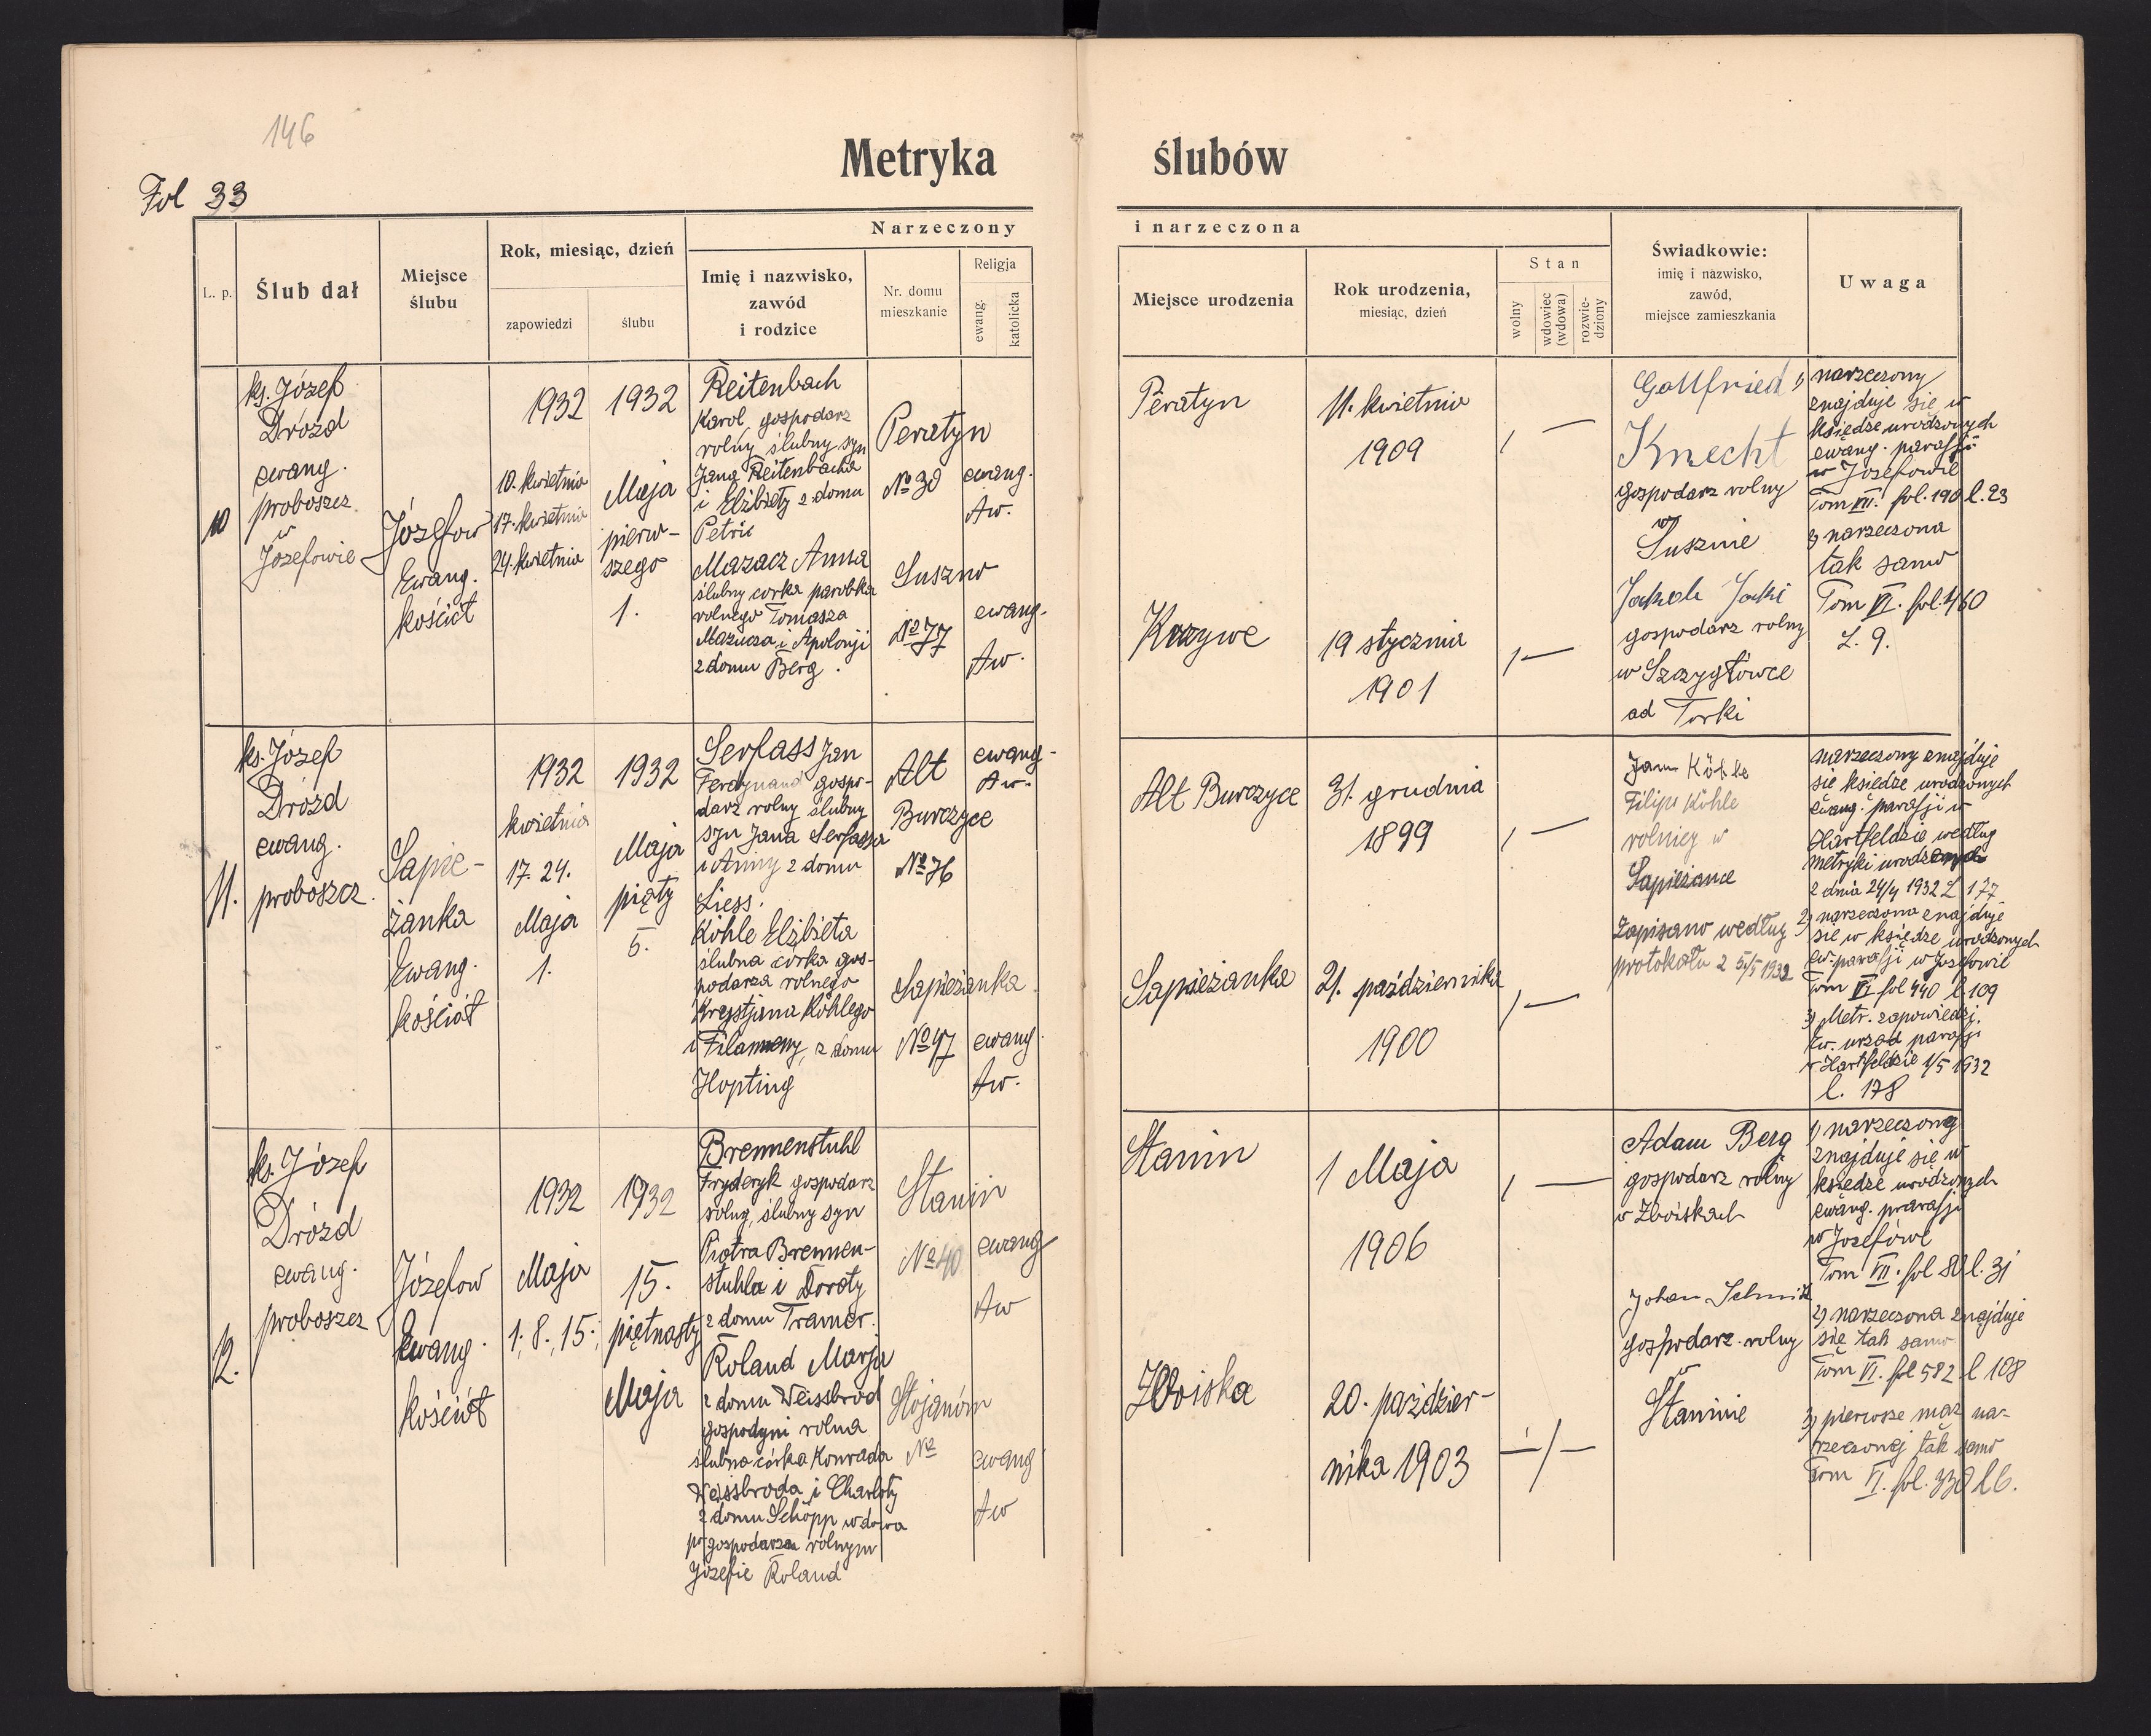 146
Fol 33
Metryka ślubów
L. p.
Ślub dał
Miejsce
ślubu
Rok, miesiąc, dzień
zapowiedzi
ślubu
Narzeczony
Imię i nazwisko,
zawód
i rodzice
Nr. domu
mieszkanie
Religja
ewang.
katolicka
i narzeczona
Miejsce urodzenia
Rok urodzenia,
miesiąc, dzień
Stan
wolny
wdowiec
(wdowa)
rozwie-
dziony
Świadkowie:
imię i nazwisko,
zawód,
miejsce zamieszkania
Uwaga
10
ks. Józef
Drózd
ewang.
proboszcz
w
Józefowie
Józefow
Ewang.
kościół
1932
10. kwietnia
17. kwietnia
24. kwietnia
1932
Maja
pierw-
szego
1.
Reitenbach
Karol, gospodarz
rolny, ślubny syn
Jana Reitenbacha
i Elżbiety z domu
Petri
Mazacz Anna
ślubny corka parobka
rolnego Tomasza
Mazucza i Apolonji
z domu Berg.
Peratyn
No 30
Suszno
No 77
ewang.
Aw.
ewang.
Aw.
Peratyn
11. kwietnia
1909
Krzywe
19 stycznia
1901
Gottfried
Knecht
gospodarz rolny
w
Susznie
Jakob Jaki
gospodarz rolny
w Szczygłowce
ad Torki
1) narzeczony
znajduje się w
księdze urodzonych
ewang. parafji
w Józefowie
Tom VII. fol. 190 l. 23
2) narzeczona
tak samo
Tom VI. fol. 460
L. 9.
11.
ks. Józef
Drózd
ewang.
proboszcz.
Sapie-
żanka
Ewang.
kościół
1932
kwietnia
17. 24.
Maja
1.
1932
Maja
piąty
5.
Serfass Jan
Ferdynand gospo-
darz rolny ślubny
syn Jana Serfassa
i Anny z domu
Liess.
Köhle Elżbieta
ślubna córka gos-
podarza rolnego
Krystjana Köhlego
i Filomeny, z domu
Hopting
Alt
Burczyce
No 76
Sapieżanka
No 97
ewang.
Aw.
ewang
Aw.
Alt Burczyce
31. grudnia
1899
Sapieżanka
21. października
1900
Jan Köhle
Filips Köhle
rolnicy w
Sapieżance
Zapisano według
protokołu z 5/5 1932
narzeczony znajduje
się księdze urodzonych
ewang. parafji w
Hartfeldzie według
metryki urodzenych
z dnia 24/4 1932 L 177
2) narzeczona znajduje
się w księdze urodzonych
ew. parafji w Józefowie
Tom VI fol 440 l. 109
3) Metr. zapowiedzi.
Ew. urząd parafji
w Hartfeldzie 1/5 1932
l. 178
12.
ks. Józef
Drózd
ewang.
proboszcz
Józefow
Ewang.
kościół
1932
Maja
1., 8., 15.,
1932
15.
piętnasty
Maja
Brennenstuhl
Fryderyk gospodarz
rolny, ślubny syn
Piotra Brennen-
stuhla i Doroty
z domu Tramer.
Roland Marja
z domu Weissbrod
gospodyni rolna
ślubna córka Konrada
Weissbroda i Charloty
z domu Schöpp wdowa
po gospodarzu rolnym
Józefie Roland
Stanin
No 40
Stojanów
No
ewang
Aw
ewang
Aw
Stanin
1 Maja
1906
Zboiska
20. paździer-
nika 1903
Adam Berg
gospodarz rolny
w Zboiskach
Johan Schmidt
gospodarz rolny
w
Staninie
1) narzeczony
znajduje się w
księdze urodzonych
ewang. parafji
w Józefowe
Tom VII. fol 80 l. 31
2) narzeczona znajduje
się tak samo
Tom VI. fol 582 l 108
3) pierwsze mąż na-
rzeczonej tak samo
Tom VI. fol. 330 l 6.